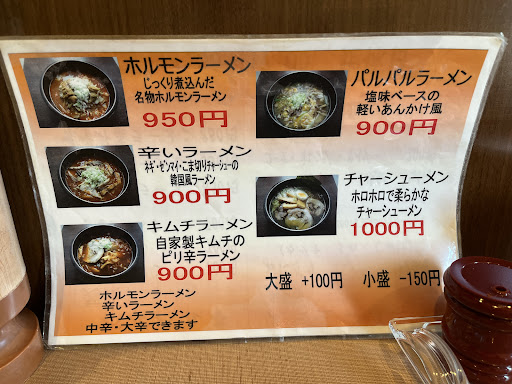 ホルモンラーメン
じっくり煮込んだ
名物ホルモンラーメン
950円
辛いラーメン
ネギ・ゼンマイ・こま切りチャーシューの
韓国風ラーメン
900円
キムチラーメン
自家製キムチの
ピリ辛ラーメン
900円
ホルモンラーメン
辛いラーメン
キムチラーメン
中辛・大辛できます
パルパルラーメン
塩味ベースの
軽いあんかけ風
900円
チャーシューメン
ホロホロで柔らかな
チャーシューメン
1000円
大盛 +100円 小盛 -150円